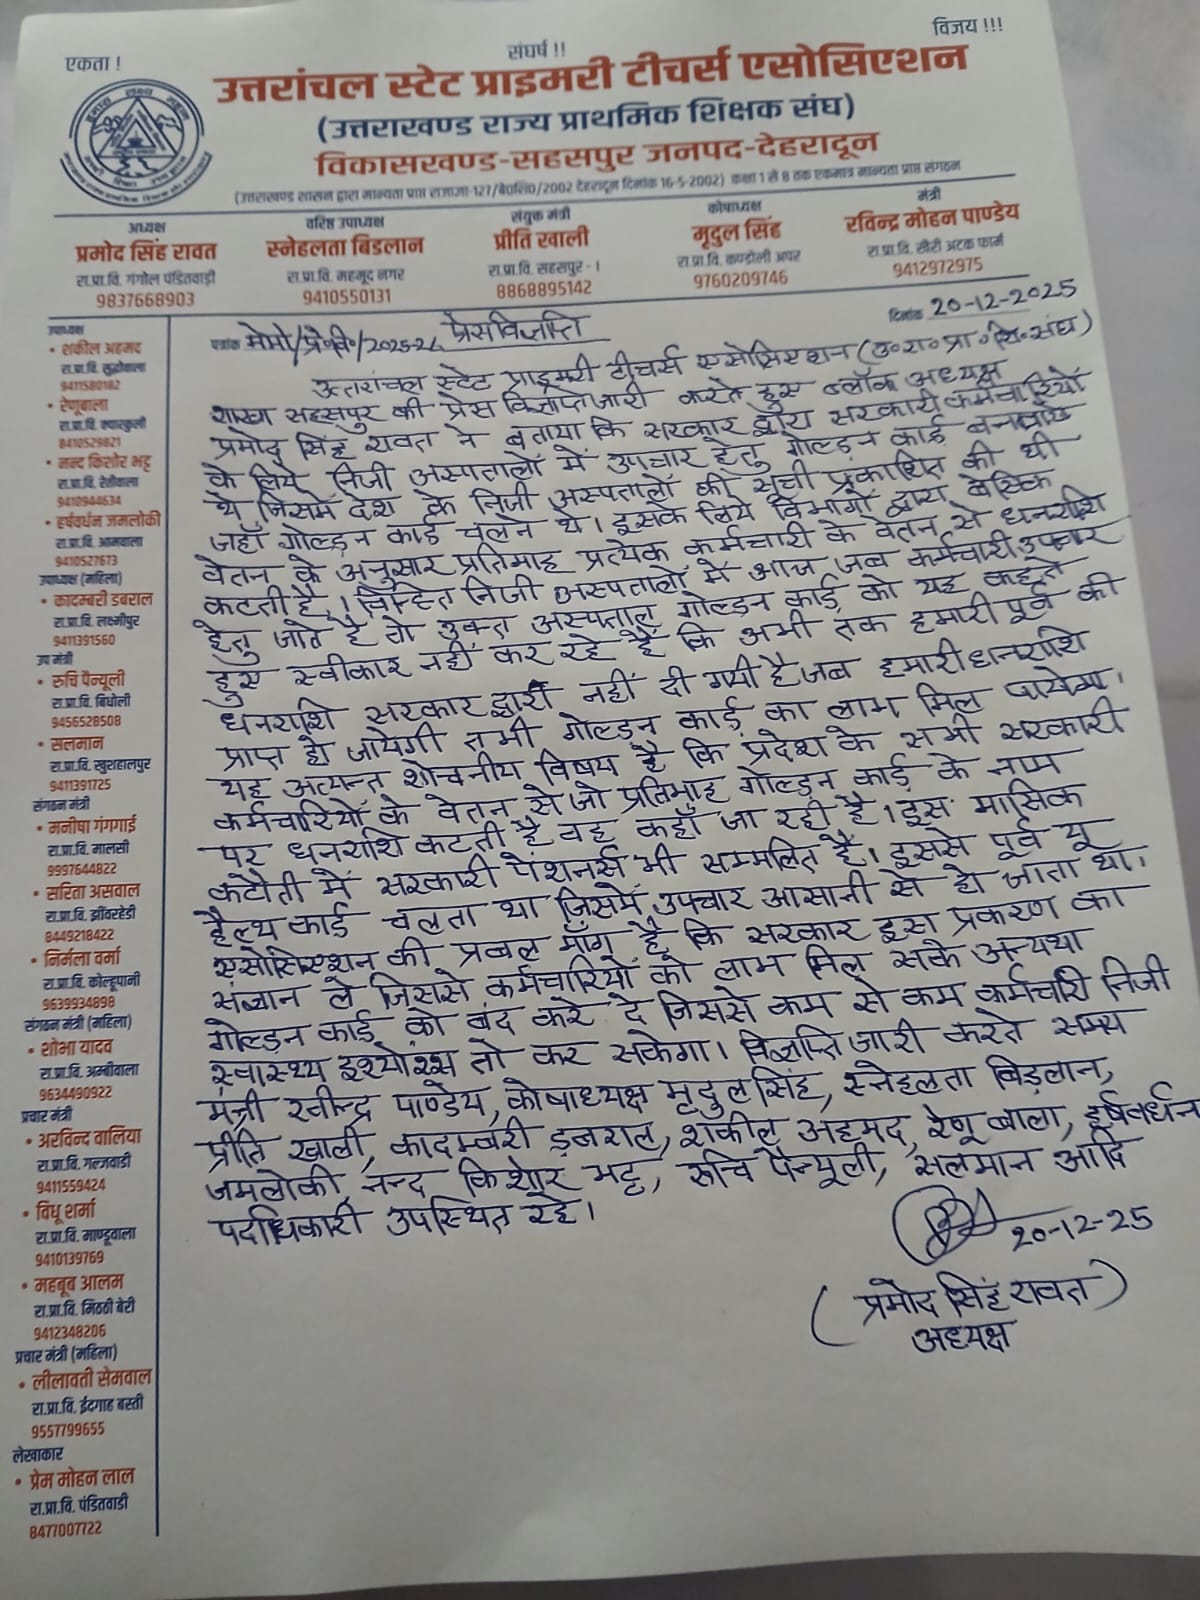 एकता !
संघर्ष !!
विजय !!!
उत्तरांचल स्टेट प्राइमरी टीचर्स एसोसिएशन
(उत्तराखण्ड राज्य प्राथमिक शिक्षक संघ)
विकासखण्ड-सहसपुर जनपद-देहरादून
(उत्तराखण्ड शासन द्वारा मान्यता प्राप्त राजाज्ञा-127/बे0शि0/2002 देहरादून दिनांक 16-5-2002) कक्षा 1 से 8 तक एकमात्र मान्यता प्राप्त संगठन
अध्यक्ष
प्रमोद सिंह रावत
रा.प्रा.वि. गंगोल पंडितवाड़ी
9837668903
वरिष्ठ उपाध्यक्ष
स्नेहलता बिडलान
रा.प्रा.वि. महमूद नगर
9410550131
संयुक्त मंत्री
प्रीति खाली
रा.प्रा.वि. सहसपुर - 1
8868895142
कोषाध्यक्ष
मृदुल सिंह
रा.प्रा.वि. कण्डोली अपर
9760209746
मंत्री
रविन्द्र मोहन पाण्डेय
रा.प्रा.वि. खैरी अटक फार्म
9412972975
उपाध्यक्ष
• शकील अहमद
रा.प्रा.वि. सुद्धोवाला
9411580182
• रेणूबाला
रा.प्रा.वि. क्यारकुली
8410529821
• नन्द किशोर भट्ट
रा.प्रा.वि. रेतीवाला
9410944634
• हर्षवर्धन जमलोकी
रा.प्रा.वि. आमवाला
9410527673
उपाध्यक्ष (महिला)
• कादम्बरी डबराल
रा.प्रा.वि. लक्ष्मीपुर
9411391560
उप मंत्री
• रुचि पैन्यूली
रा.प्रा.वि. बिधोली
9456528508
• सलमान
रा.प्रा.वि. खुशहालपुर
9411391725
संगठन मंत्री
• मनीषा गंगगाई
रा.प्रा.वि. मालसी
9997644822
• सरिता असवाल
रा.प्रा.वि. झींवरहेडी
8449218422
• निर्मला वर्मा
रा.प्रा.वि. कोल्हूपानी
9639934898
संगठन मंत्री (महिला)
• शोभा यादव
रा.प्रा.वि. अम्बीवाला
9634490922
प्रचार मंत्री
• अरविन्द वालिया
रा.प्रा.वि. गल्जवाडी
9411559424
• विधू शर्मा
रा.प्रा.वि. माण्डूवाला
9410139769
• महबूब आलम
रा.प्रा.वि. मिठठी बेरी
9412348206
प्रचार मंत्री (महिला)
• लीलावती सेमवाल
रा.प्रा.वि. ईदगाह बस्ती
9557799655
लेखाकार
• प्रेम मोहन लाल
रा.प्रा.वि. पंडितवाडी
8477007722
पत्रांक मेमो/प्रे०वि०/2025-26 प्रेस विज्ञप्ति दिनांक 20-12-2025
उत्तरांचल स्टेट प्राइमरी टीचर्स एसोसिएशन (उ०रा०प्रा०शि०संघ)
शाखा सहसपुर की प्रेस विज्ञप्ति जारी करते हुए ब्लॉक अध्यक्ष
प्रमोद सिंह रावत ने बताया कि सरकार द्वारा सरकारी कर्मचारियों
के लिये निजी अस्पतालों में उपचार हेतु गोल्डन कार्ड बनवाये
थे जिसमें देश के निजी अस्पतालों की सूची प्रकाशित की थी
जहाँ गोल्डन कार्ड चलने थे। इसके लिये विभागों द्वारा बेसिक
वेतन के अनुसार प्रतिमाह प्रत्येक कर्मचारी के वेतन से धनराशि
कटती है। चिन्हित निजी अस्पतालों में आज जब कर्मचारी उपचार
हेतु जाते है तो उक्त अस्पताल गोल्डन कार्ड को यह कहते
हुए स्वीकार नहीं कर रहे है कि अभी तक हमारी पूर्व की
धनराशि सरकार द्वारा नहीं दी गयी है जब हमारी धनराशि
प्राप्त हो जायेगी तभी गोल्डन कार्ड का लाभ मिल पायेगा।
यह अत्यन्त शोचनीय विषय है कि प्रदेश के सभी सरकारी
कर्मचारियों के वेतन से जो प्रतिमाह गोल्डन कार्ड के नाम
पर धनराशि कटती है वह कहाँ जा रही है। इस मासिक
कटौती में सरकारी पेंशनर्स भी सम्मलित है। इससे पूर्व यू
हैल्थ कार्ड चलता था जिसमें उपचार आसानी से हो जाता था।
एसोसिएशन की प्रबल माँग है कि सरकार इस प्रकरण का
संज्ञान ले जिससे कर्मचारियों को लाभ मिल सके अन्यथा
गोल्डन कार्ड को बंद करे दे जिससे कम से कम कर्मचारी निजी
स्वास्थ्य इंश्योरेंस तो कर सकेगा। विज्ञप्ति जारी करते समय
मंत्री रवीन्द्र पाण्डेय, कोषाध्यक्ष मृदुल सिंह, स्नेहलता बिड़लान,
प्रीति खाली, कादम्बरी डबराल, शकील अहमद, रेणू बाला, हर्षवर्धन
जमलोकी, नन्द किशोर भट्ट, रूचि पैन्यूली, सलमान आदि
पदाधिकारी उपस्थित रहे।
20-12-25
(प्रमोद सिंह रावत)
अध्यक्ष